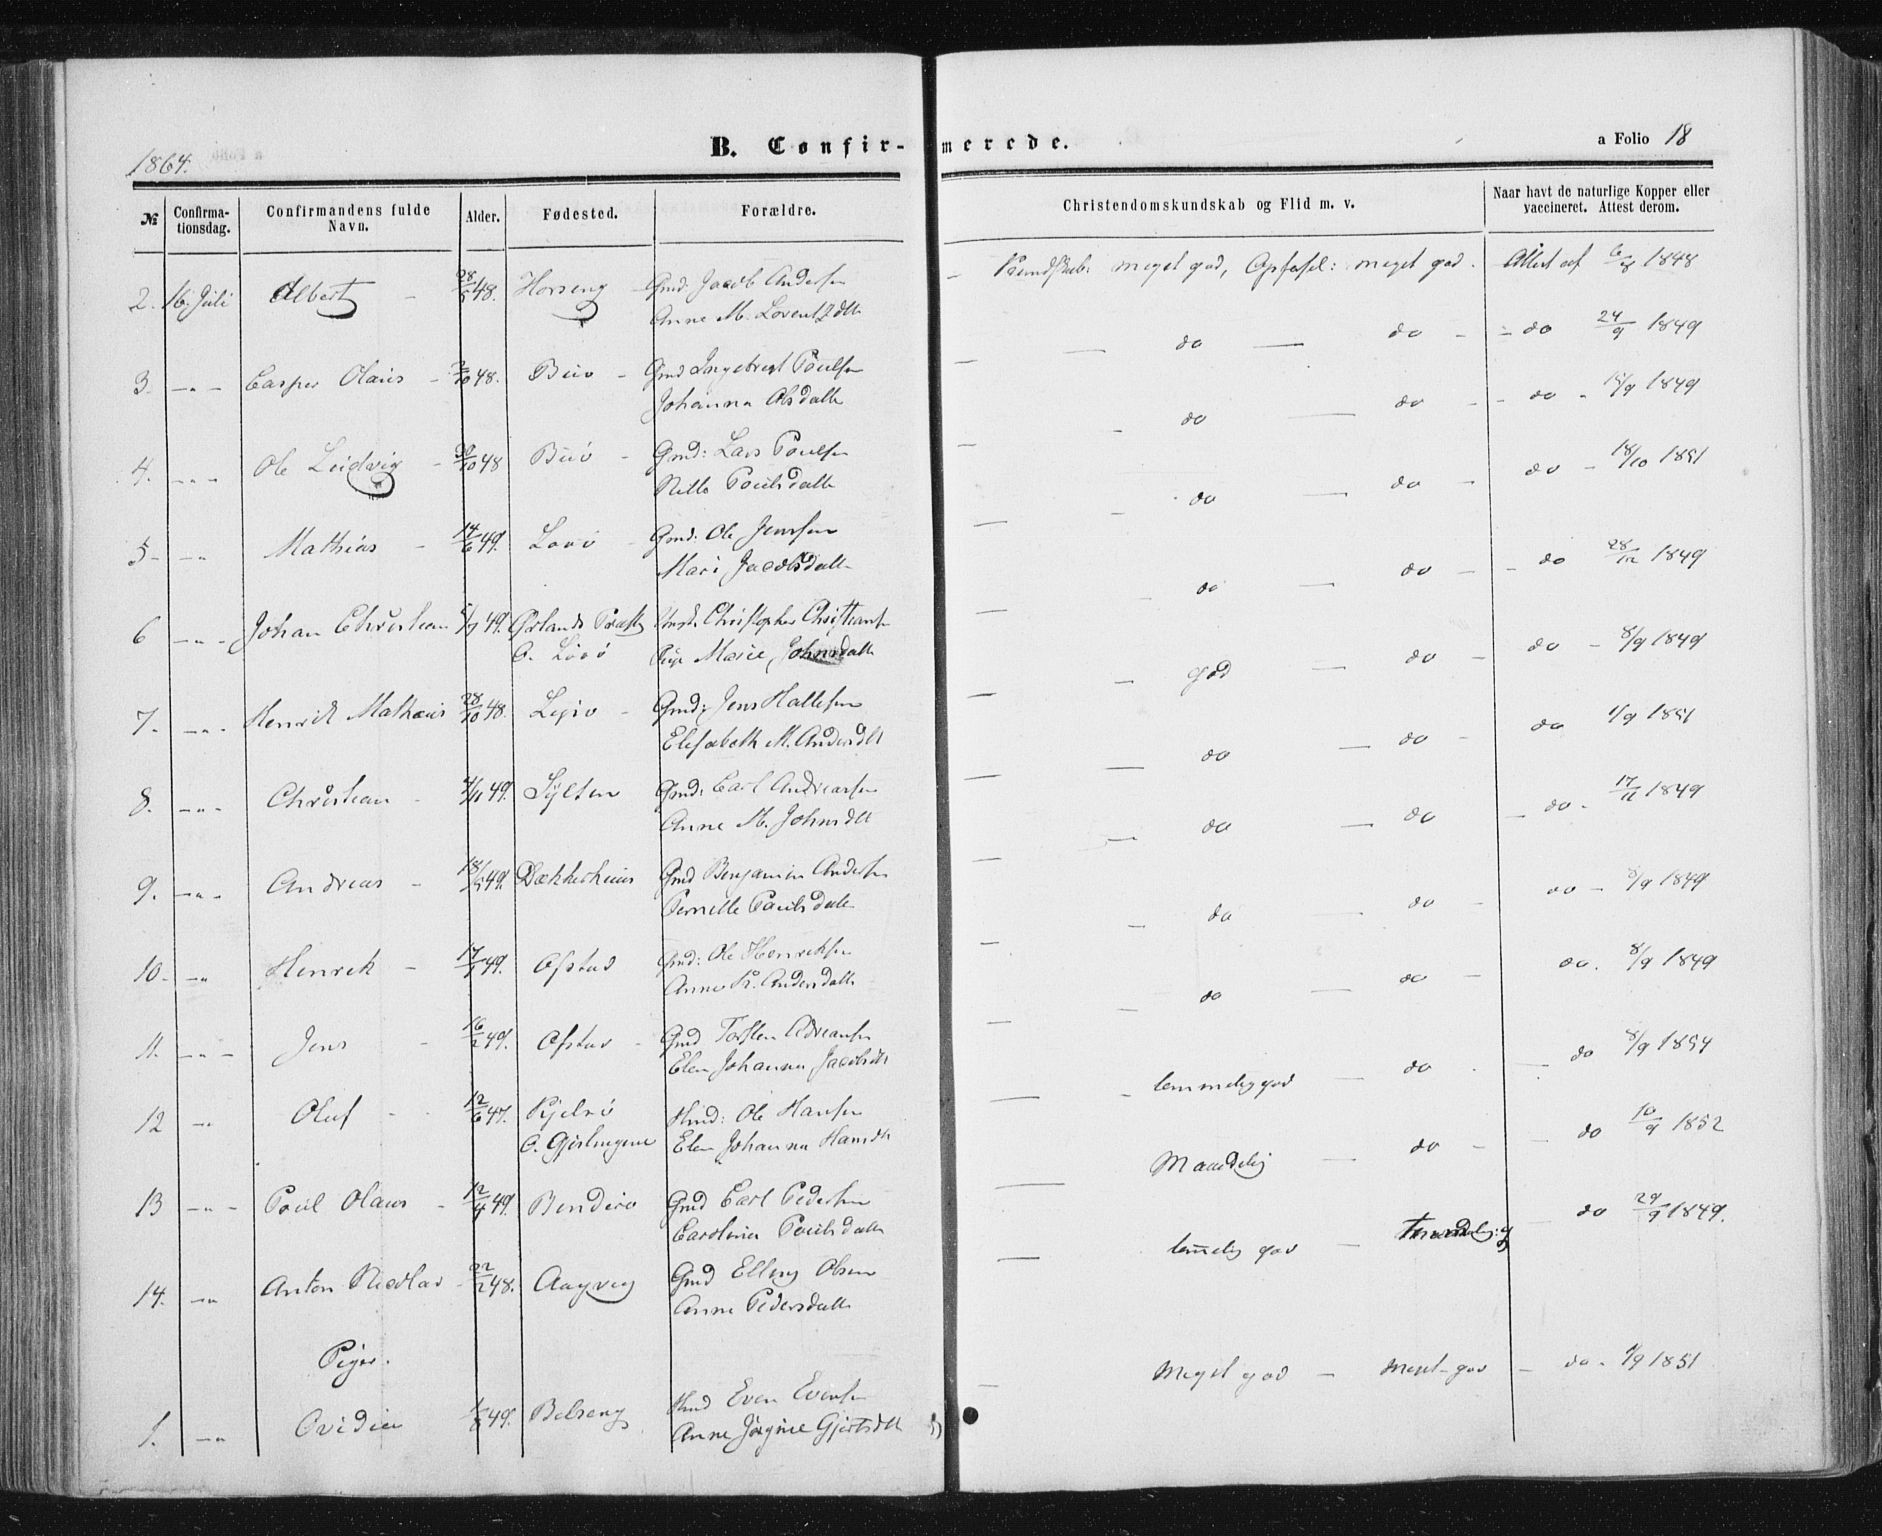 1864.
B. Confir-
merede.
a Folio 18
№
Confirma-
tionsdag.
Confirmandens fulde
Navn.
Alder.
Fødested.
Forældre.
Christendomskundskab og Flid m. v.
Naar havt de naturlige Kopper eller
vaccineret. Attest derom.
2. 16. Juli Albert - 28/5 48. Horseng - Gmd. Jacob Andersen
Anne M. Lorentzdttr
- Kundskab: meget god, Opførsel: meget god. Attest af 6/8 1848
3. -"- Casper Olaus - 48. Buø - Gmd Ingebrigt Poulsen
Johanna Olsdattr
- do - do - - do 24/9 1849
4. -"- Ole Ludvig - 30/10 48 Buø - Gmd: Lars Poulsen
Poulsdattr
- do - do - - do - 15/9 1849
5 - -"- Mathias - 14/6 49. Lovø - Gmd: Ole Jenssen
Mari Jacobsdattr
- do - do - do - 18/10 1851
6 -"- Johan Christian 49. Ørlands Præstg Christopher Christiansen
O. Lovø Pige Marie Johnsdattr
- do - do - - do 28/12 1849
7. -"- Henrik Mathæus 28/10 48. - Gmd: Jens Hallesen
Elisabeth M. Andersdtt
- god - do - do - 8/9 1849
8. -"- Christian - 49. Sylten Gmd: Carl Andreassen
Anne M. Johnsdtt
- do - do - do 1/9 1851
9. -"- Andreas - 18/5 49. Gmd Benjamin Andersen
Pernille Poulsdattr
- do - do - do - 17/11 1849
10. -"- Henrik - 49. Ofstad Gmd: Ole Henriksen
Anne K. Andersdattr
- do - do - do - 8/9 1849
11. -"- Jens - 16/2 49. Ofstad - Gmd Torsten Adreansen
Elen Johanna Jacobsdtt
- do - do - do. 8/9 1849
12 -"- Oluf - 12/6 47. O. Gjæslingene Hmd: Ole Hansen
Elen Johanna Hansdtr
- temmelig god - do - do 8/9 1854
13 -"- Poul Olaus - 12/4 49. Bondø Gmd Carl Pedersen
Carolina Poulsdattr
- Maadelig - do - - do 10/9 1852
14. -"- Anton Nicolai - 22/2 48. Aagvig Gmd Elling Olsen
Anne Pedersdattr
- temelig god - - do 29/9 1849.
Piger.
1. -"- Ovidie 49. Belseng Hmd Even Evensen
Anne Jørgine Gjertsdtt
- Meget god - Meget god - do - 1/9 1851